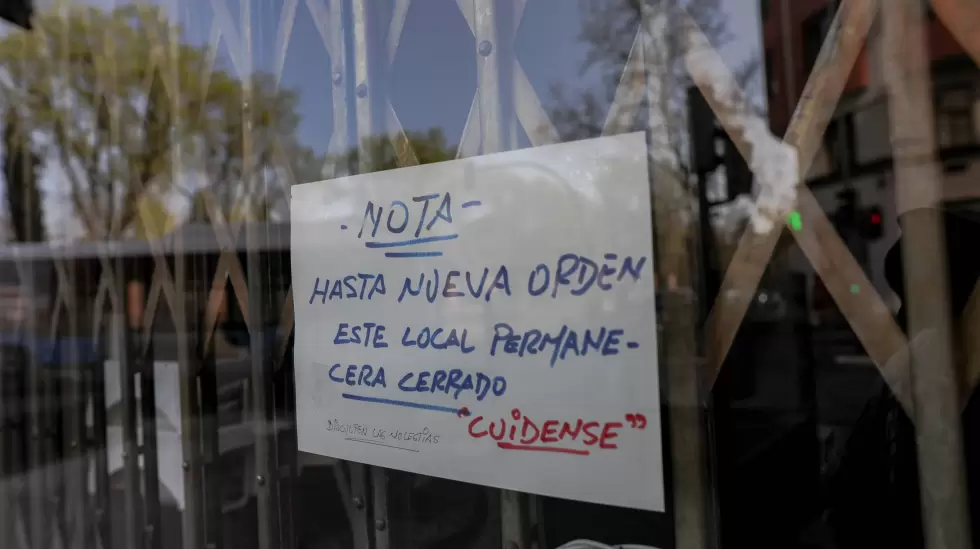 - NOTA -
HASTA NUEVA ORDEN
ESTE LOCAL PERMANE-
CERA CERRADO
"CUIDENSE"
DISCULPEN LAS MOLESTIAS